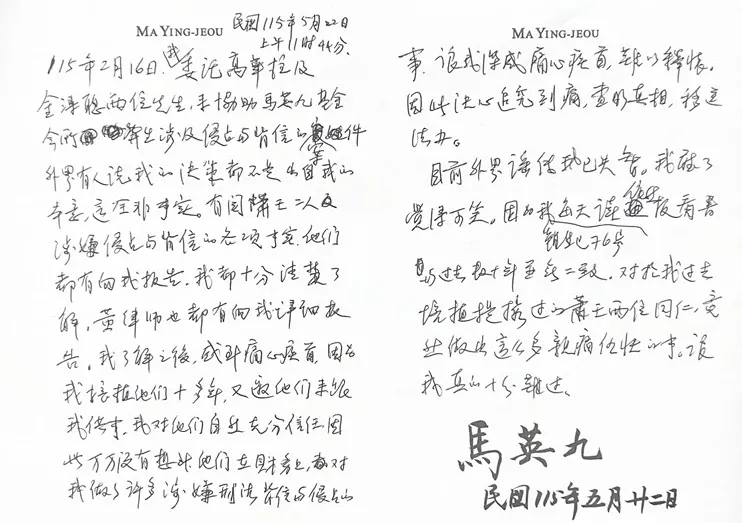 MA YING-JEOU
民國115年5月22日
上午11時44分.
115年2月16日、我委託高華柱及
金溥聰兩位先生,来協助馬英九基金
會所發生涉及侵占与背信的案件
外界有人說我的決策都不是出自我的
本意,這全非事实。有関蕭王二人及
涉嫌侵占与背信的各項事实,他們
都有向我报告,我都十分清楚了
解,黃律师也都有向我详细报
告。我了解之後,感到痛心疾首,因為
我培植他們十多年,又邀他們来跟
我供事,我对他們自然充分信任因
此万万沒有想到他們在財务上,都对
我做了許多涉嫌刑法背信与侵占的
MA YING-JEOU
事,讓我深感痛心疾首,難以釋怀。
因此决心追究到底,查明真相,移送
法办。
目前外界謠传我已失智。我聽了
覺得可笑。因為我每天讀 报看書
与过去数十年並無二致,对於我过去
培植提携过的蕭王两位同仁,竟
然做出這么多親痛仇快的事,讓
我真的十分難过。
馬英九
民國115年五月廿二日